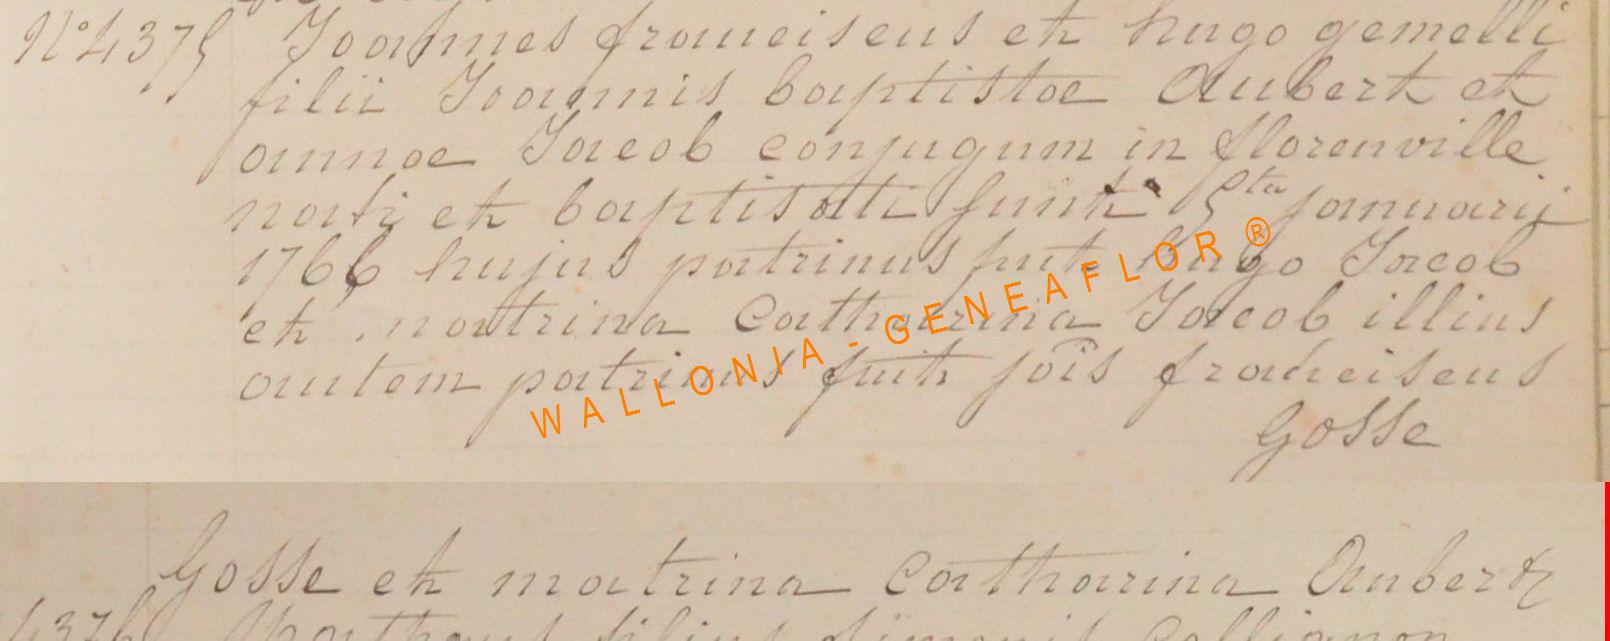 N° 4375 Joannes franciscus et hugo gemelli
filii Joannis baptistae Aubert et
annae Jacob conjugum in florenville
nati et baptisati sunt 5ta januarii
1766 hujus patrinus fuit hugo Jacob
et matrina Catharina Jacob illius
autem patrinus fuit jois franciscus
Gosse
WALLONIA-GENEAFLOR®
Gosse et matrina Catharina Aubert
4376 Mattheus filius simonis Collignon